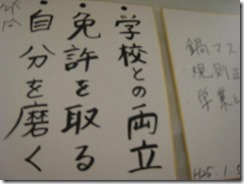 ・学校との両立
・免許を取る
・自分を磨く
・鍋マス
・規則正
・学業と
H25.1.5